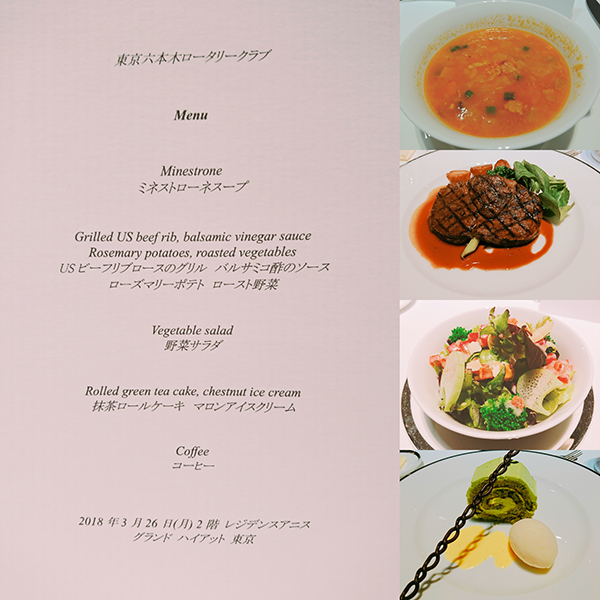 東京六本木ロータリークラブ
Menu
Minestrone
ミネストローネスープ
Grilled US beef rib, balsamic vinegar sauce
Rosemary potatoes, roasted vegetables
US ビーフリブロースのグリル バルサミコ酢のソース
ローズマリーポテト ロースト野菜
Vegetable salad
野菜サラダ
Rolled green tea cake, chestnut ice cream
抹茶ロールケーキ マロンアイスクリーム
Coffee
コーヒー
2018 年 3 月 26 日(月) 2 階 レジデンスアニス
グランド ハイアット 東京